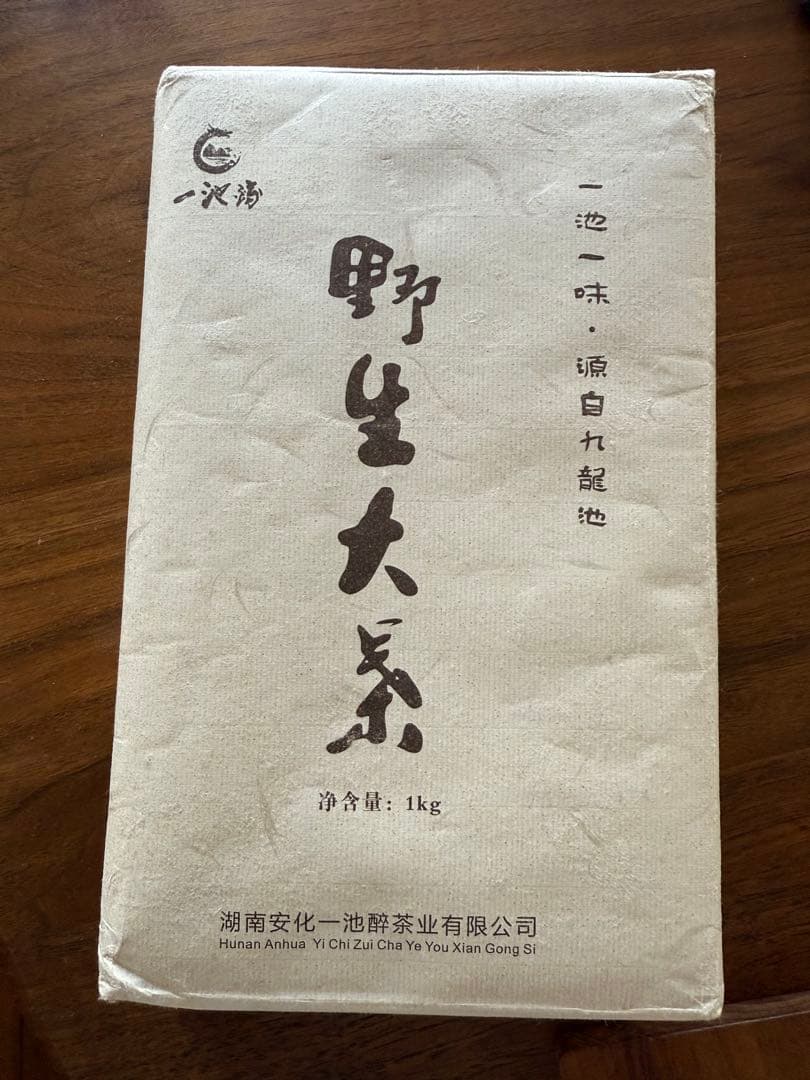 一池醉
野生大葉
一池一味·源自九龍池
净含量：1kg
湖南安化一池醉茶业有限公司
Hunan Anhua Yi Chi Zui Cha Ye You Xian Gong Si